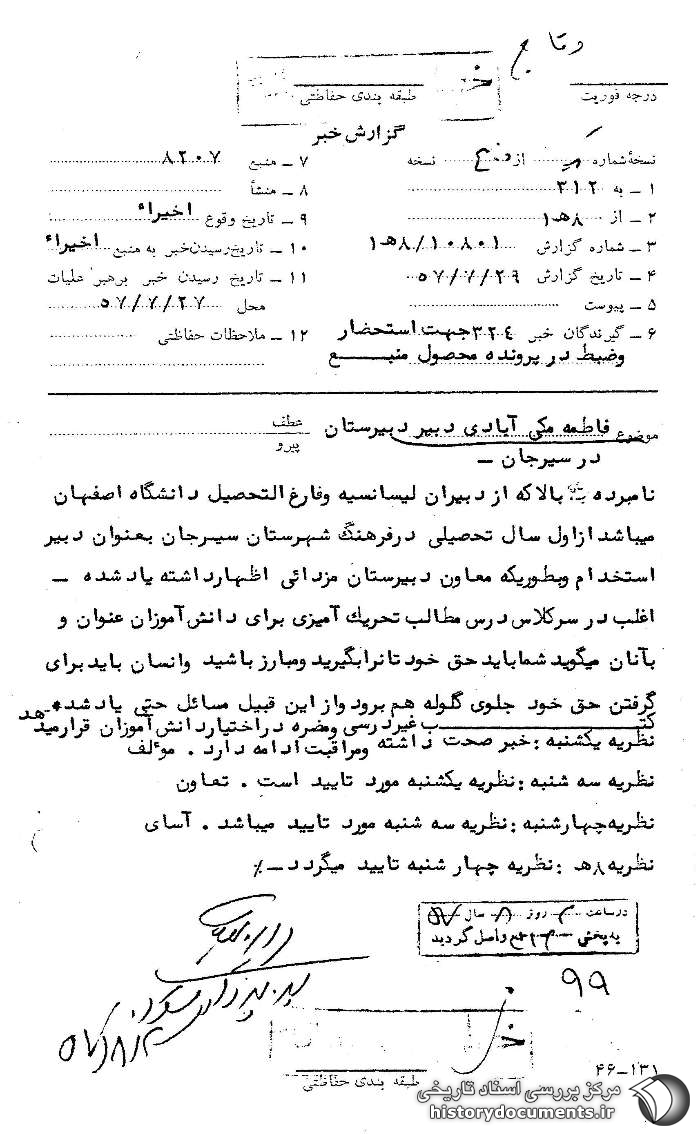 وقایع
درجه فوریت
طبقه بندی حفاظتی
گزارش خبر
نسخهٔ شماره از نسخه
۱ ـ به ۳۱۲
۲ ـ از ۸هـ۱
۳ ـ شماره گزارش ۸/۱۰۸۰۱هـ۱
۴ ـ تاریخ گزارش ۵۷/۷/۲۹
۵ ـ پیوست
۶ ـ گیرندگان خبر ۳۲۴جهت استحضار
وضبط در پرونده محصول منبع
۷ ـ منبع ۸۲۰۷
۸ ـ منشأ
۹ ـ تاریخ وقوع اخیراء
۱۰ ـ تاریخ رسیدن خبر به منبع اخیراء
۱۱ ـ تاریخ رسیدن خبر برهبر عملیات
محل ۵۷/۷/۲۷
۱۲ ـ ملاحظات حفاظتی
موضوع فاطمه مکی آبادی دبیر دبیرستان
در سیرجان ـ
عطف
پیرو
نامبرده بالا که از دبیران لیسانسیه وفارغ التحصیل دانشگاه اصفهان
میباشد ازاول سال تحصیلی درفرهنگ شهرستان سیرجان بعنوان دبیر
استخدام وبطوریکه معاون دبیرستان مزدائی اظهارداشته یاد شده ـ
اغلب در سرکلاس درس مطالب تحریك آمیزی برای دانش آموزان عنوان و
بآنان میگوید شما باید حق خود تانرا بگیرید ومبارز باشید وانسان باید برای
گرفتن حق خود جلوی گلوله هم برود واز این قبیل مسائل حتی یاد شده
کتب غیردرسی ومضره در اختیاردانش آموزان قرارمیدهد
نظریه یکشنبه : خبر صحت داشته ومراقبت ادامه دارد . موٴلف
نظریه سه شنبه : نظریه یکشنبه مورد تایید است . تعاون
نظریه چهارشنبه : نظریه سه شنبه مورد تایید میباشد . آسای
نظریه ۸هـ : نظریه چهار شنبه تایید میگردد ـ٪
در ساعت روز ۸ سال ۵۷
به بخش واصل گردید
۹۹
طبقه بندی حفاظتی
۴۶-۱۳۱
مرکز بررسی اسناد تاریخی
historydocuments.ir